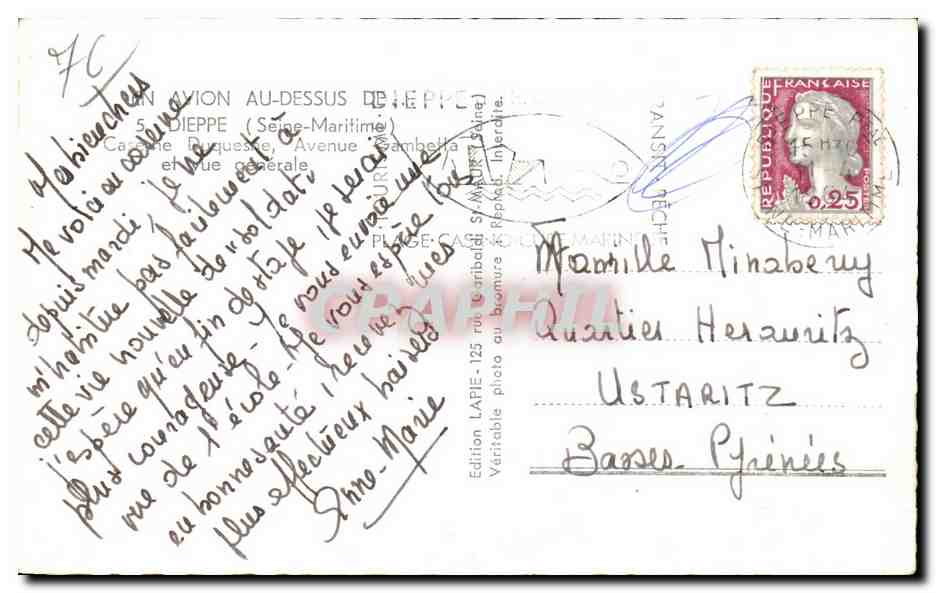 7C
EN AVION AU-DESSUS DE
5 - DIEPPE (Seine-Maritime)
Caserne Duquesne, Avenue Gambetta
et Vue générale
Mes bien chers
Me voici au caserne
depuis mardi, je ne
m'habitue pas facilement à
cette vie nouvelle de "soldat"
j'espère qu'en fin de stage je serais
plus courageuse. Je vous envoie une
vue de l'école. Je vous espère tous
en bonne santé, recevez mes
plus affectueux baisers
Anne-Marie
Edition LAPIE - 125 rue Garibaldi St-MAUR (Seine)
Véritable photo au bromure Reprod. Interdite.
DIEPPE
PLAGE-CASINO-CURE MARINE
REPUBLIQUE FRANÇAISE
0,25
SEINE-MARITIME
CRAPHIL
Famille Mirabeny
Quartier Herauritz
USTARITZ
Basses-Pyrénées